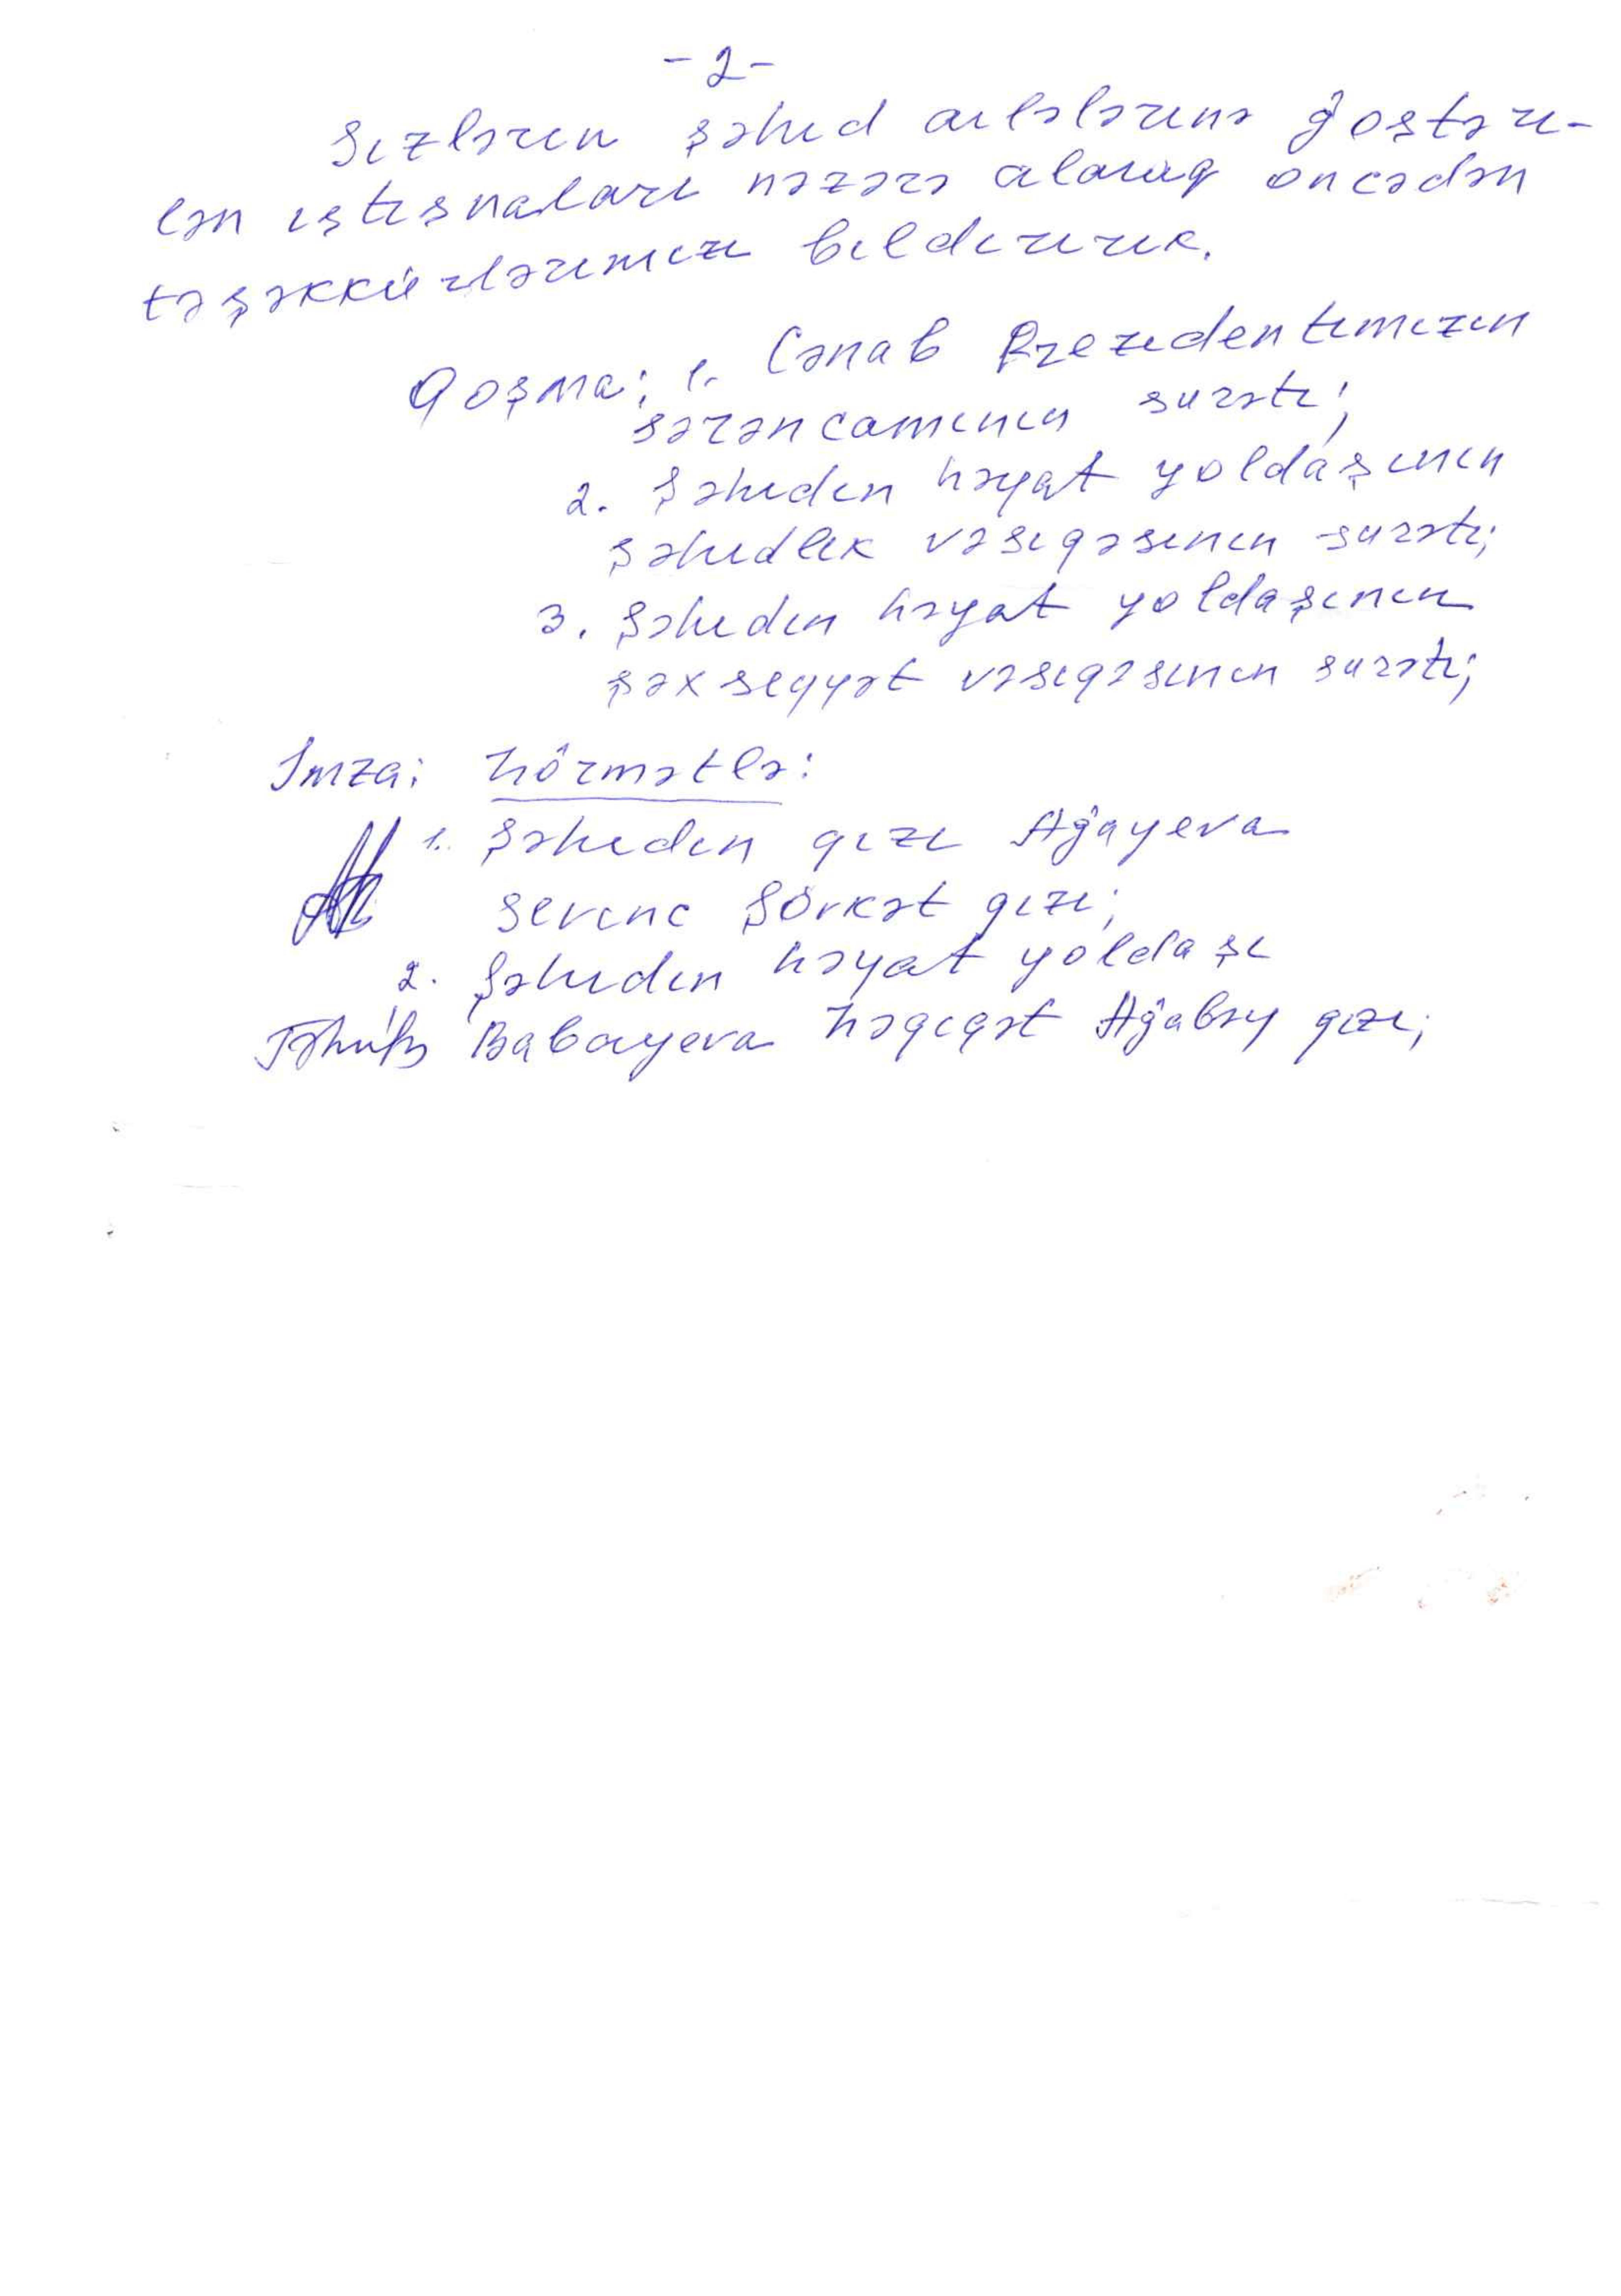 - 2 -
Sizlərin şəhid ailələrinə göstəri-
lən istisnaları nəzərə alaraq öncədən
təşəkkürlərimizi bildiririk.
Qoşma: 1. Cənab Prezidentimizin
sərəncamının surəti;
2. Şəhidin həyat yoldaşının
şəhidlik vəsiqəsinin surəti;
3. Şəhidin həyat yoldaşının
şəxsiyyət vəsiqəsinin surəti;
İmza: Hörmətlə:
1. Şəhidin qızı Ağayeva
Sevinc Şövkət qızı;
2. Şəhidin həyat yoldaşı
Babayeva Həqiqət Ağabəy qızı;